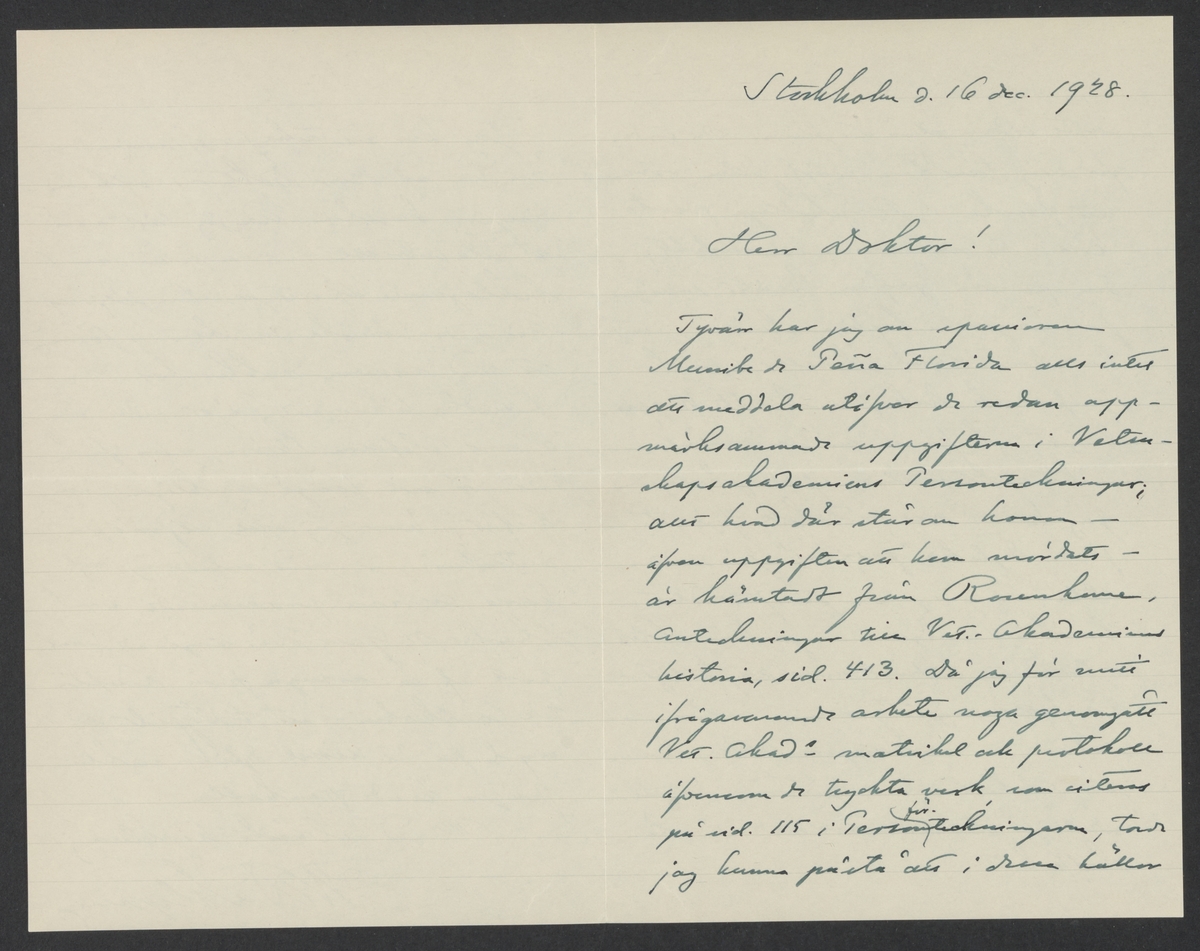 Stockholm d. 16 dec. 1928.
Herr Doktor!
Tyvärr har jag om spanioren
Munibe de Peña Florida alls intet
att meddela utöfver de redan upp-
märksammade uppgifterna i Veten-
skapsakademiens Personteckningar;
allt hvad där står om honom —
äfven uppgiften att han mördats —
är hämtadt från Rosenhane,
Anteckningar till Vet.-Akademiens
historia, sid. 413. Då jag för mitt
ifrågavarande arbete noga genomgått
Vet. Akad:s matrikel och protokoll
äfvensom de tryckta verk, som citeras
på sid. 115 i Personförteckningarna, torde
jag kunna påstå att i dessa källor